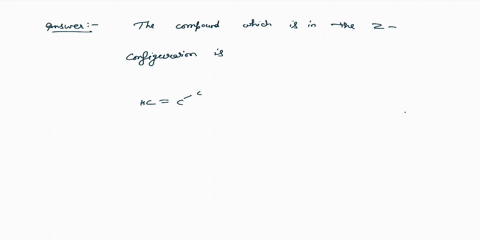 Answer:- The compound which is in the Z-
configuration is
HC = C - C